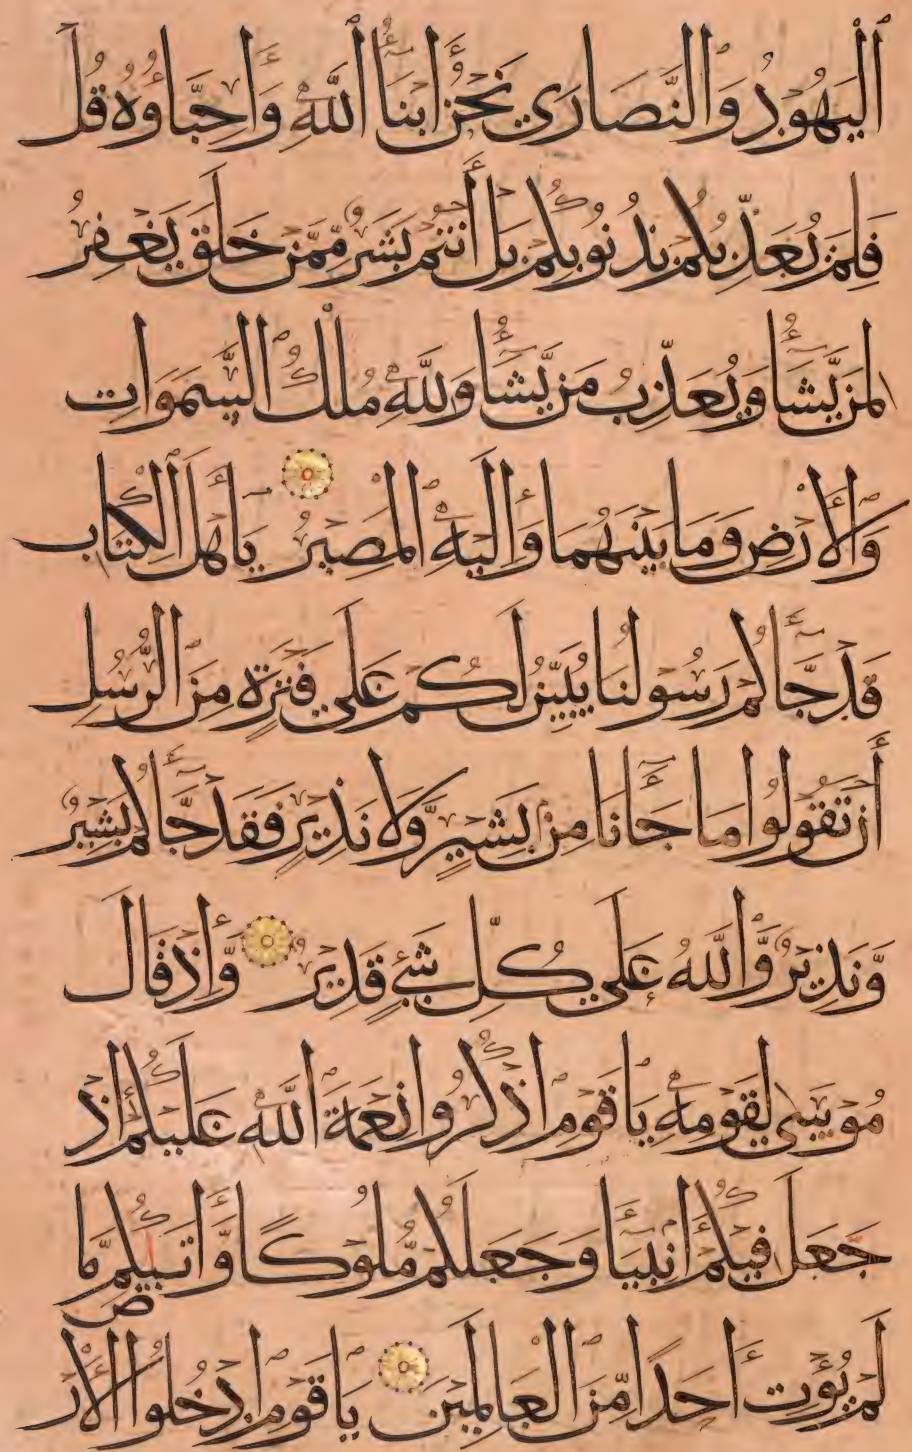 ٱلْيَهُوْدُ وَالنَّصَارَي نَحْنُ أَبْنَآُ اللَّهِ وَأَحِبَّاوُهُ قُلْ
فَلِمَ يُعَذِّبُكُمْ بِذُنُوْبِكُمْ بَلْ أَنْتُمْ بَشَرٌ مِّمَّنْ خَلَقَ يَغْفِرُ
لِمَنْ يَّشَآُ وَيُعَذِّبُ مَنْ يَّشَآُ وَلِلَّهِ مُلْكُ السَّمَوَاتِ
وَالْأَرْضِ وَمَا بَيْنَهُمَا وَإِلَيْهِ الْمَصِيْرُ يَاَهْلَ الْكِتَابِ
قَدْ جَّآكُمْ رَسُوْلُنَا يُبَيِّنُ لَكُمْ عَلَي فَتْرَةٍ مِنَ الرُّسُلِ
أَنْ تَقُوْلُوْا مَا جَآنَا مِنْ بَشِيْرٍ وَّلَا نَذِيْرٍ فَقَدْ جَّآكُمْ بَشِيْرٌ
وَّنَذِيْرٌ وَّاللَّهُ عَلَي كُلِّ شَيْءٍ قَدِيْرٌ وَّإِذْ قَالَ
مُوْسَى لِقَوْمِهِ يَا قَوْمِ اذْكُرُوْا نِعْمَةَ اللَّهِ عَلَيْكُمْ إِذْ
جَعَلَ فِيْكُمْ أَنْبِيَآَ وَجَعَلَكُمْ مُّلُوْكًا وَّأَتَىكُمْ مَّا
لَمْ يُؤْتِ أَحَدًا مِّنَ الْعَالَمِيْنَ يَا قَوْمِ ادْخُلُوْا الْأَرْ
ص